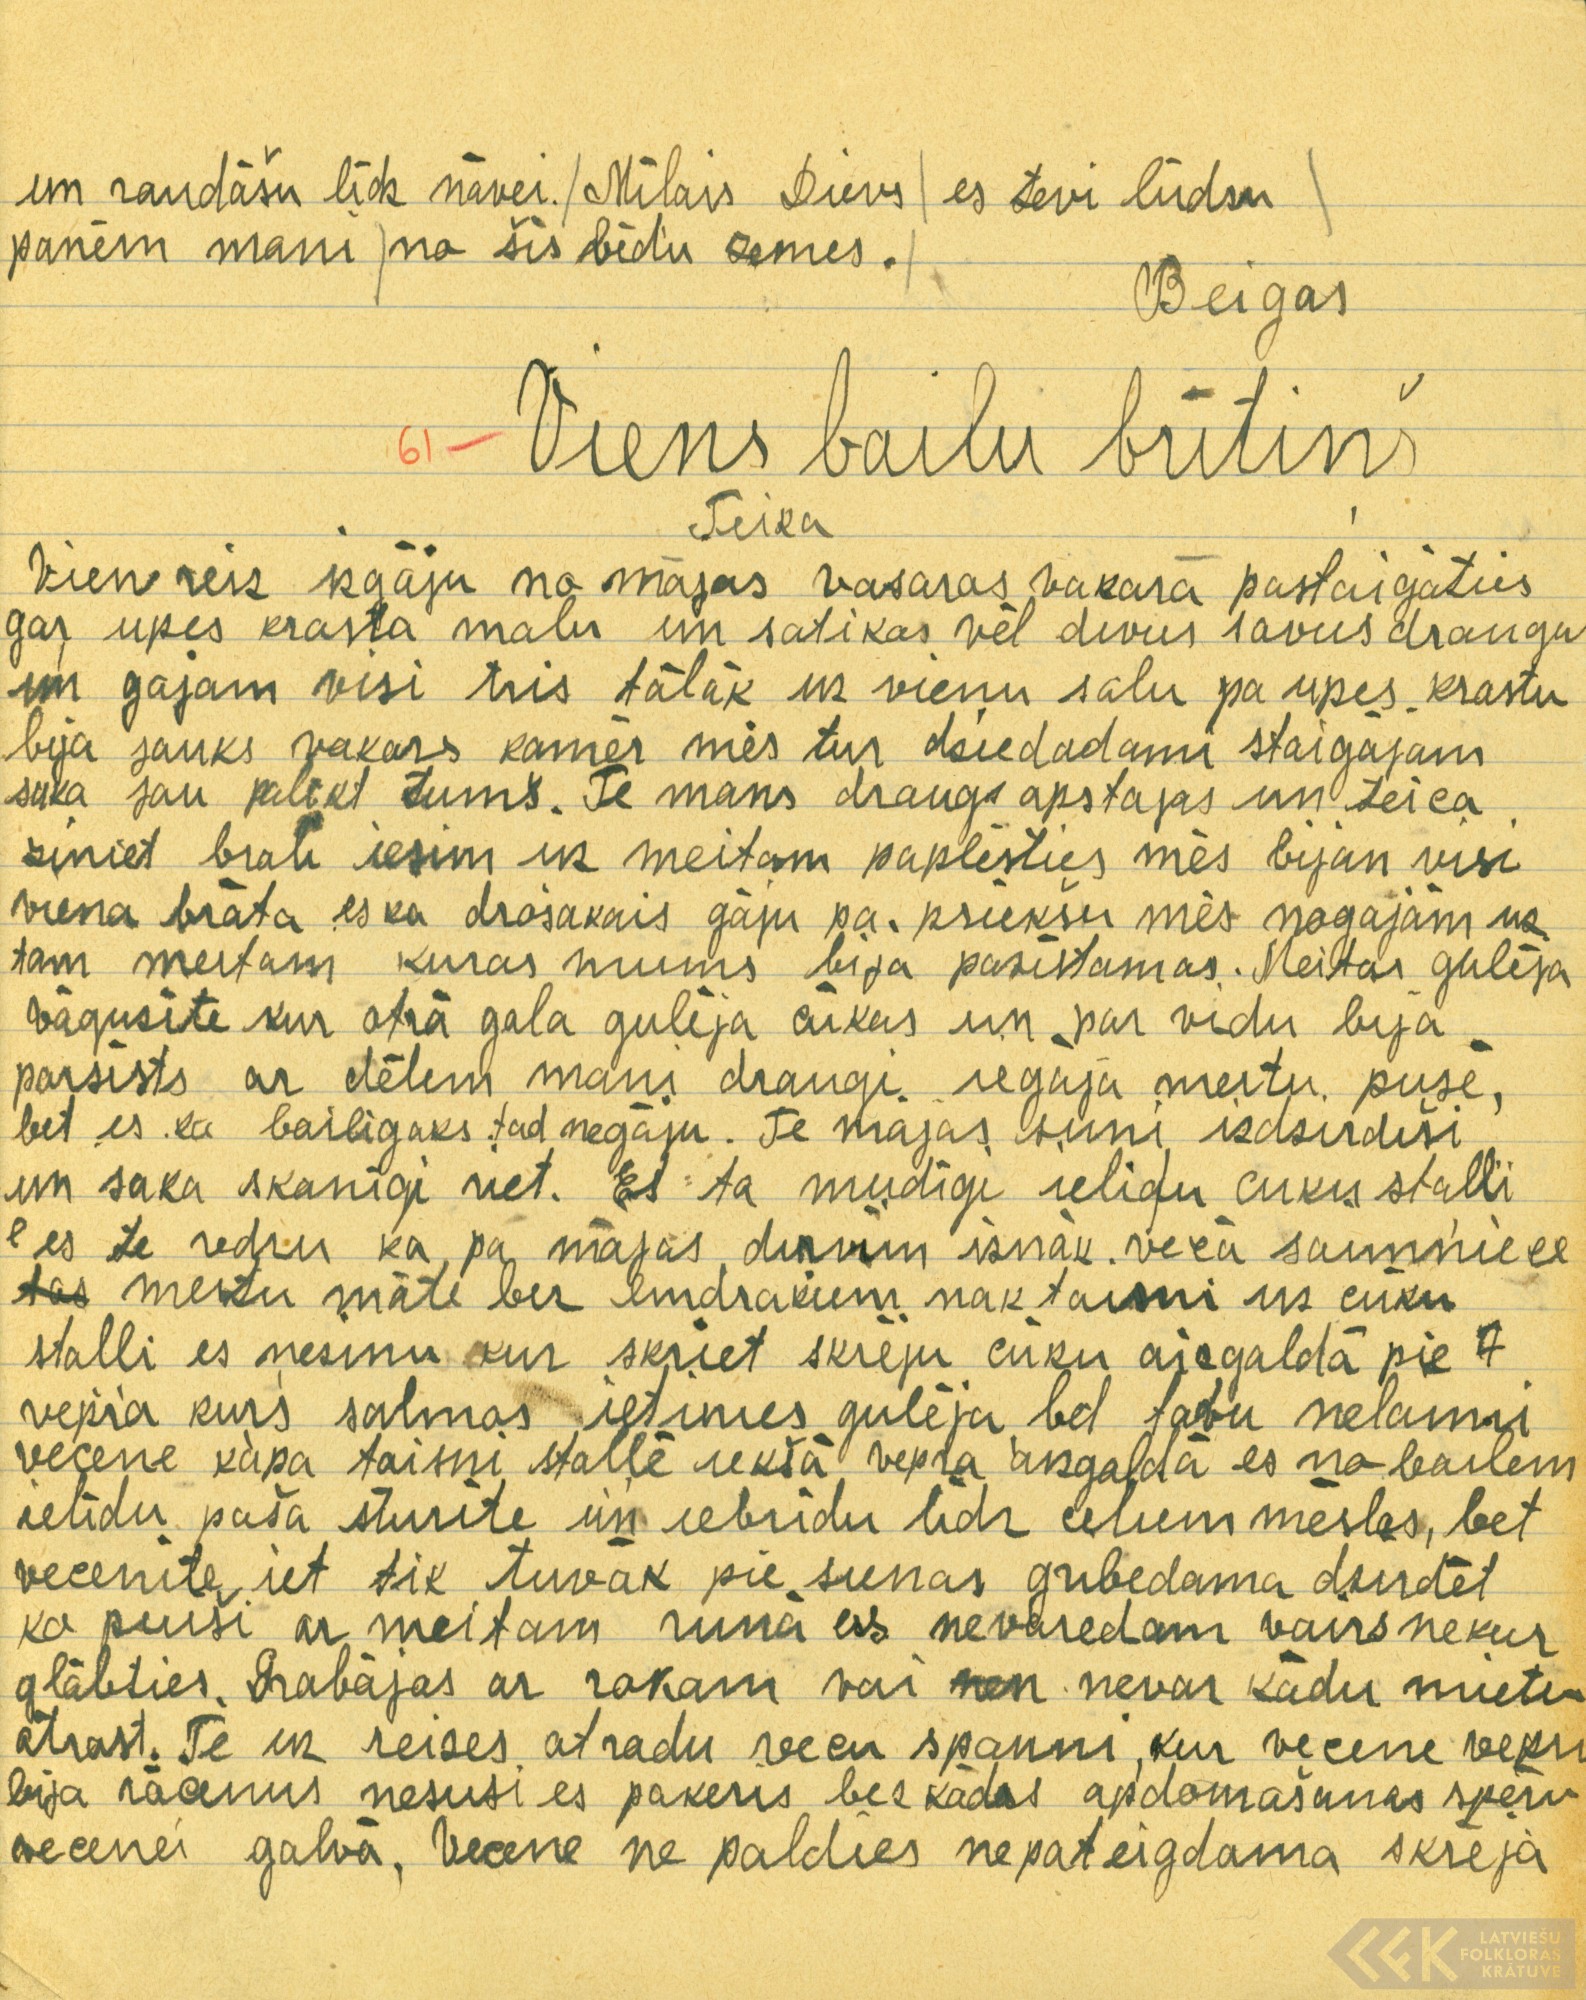 un raudāšu līdz nāvei. / Mīlais Dievs / es tevi lūdsu /
paņem mani / no šīs bēdu zemes. /
Beigas
61 — Viens bailu brītiņš
Teika
Vien reiz izgāju no mājas vasaras vakarā pastaigāties
gar upes krasta malu un satikas vēl divus savus draugu
un gājam visi trīs tālāk uz vienu salu pa upes krastu
bija jauks vakars kamēr mēs tur dziedadami staigājam
saka jau palikt tumš. Te mans draugs apstajas un teica
ziniet brali iesim uz meitam paplēsties mēs bijan visi
viena brāta es ka drošakais gāju pa priekšu mēs nogajām uz
tam meitam kuras mums bija pazīstamas. Meitas gulēja
vāgusite kur otrā gala gulēja cūkas un par vidu bija
parsists ar dēlem mani draugi iegāja meitu pusē,
bet es ka bailigaks tad negāju. Te mājas suni izdzirdiši
un saka skanīgi riet. Es ta mudīgi ielidu cuku stalli
es te redzu ka pa mājas durvim iznāk vecā saimniece
tas meitu māte ber lindrakiem nak taisni uz cūku
stalli es nezinu kur skriet skrēju cūku aizgaldā pie
vepra kurš salmos ietinies gulēja bet tatu nelaimi
vecene kāpa taisni stallē iekšā vepra aizgaldā es no bailem
ielīdu paša stūrīte un iebridu līdz celiem mēslos, bet
vecenīte iet tik tuvāk pie sienas gribedama dzirdēt
ko puiši ar meitam runā es nevaredam vairs nekur
glābties. Grabājas ar rokam vai nevar kādu mietu
atrast. Te uz reizes atradu vecu spanni, kur vecene vepri
bija rācenus nesusi es pakeris bez kādas apdomašanas spēru
vecenei galvā, Vecene ne paldies nepateigdama skrēja
LATVIEŠU
FOLKLORAS
KRĀTUVE